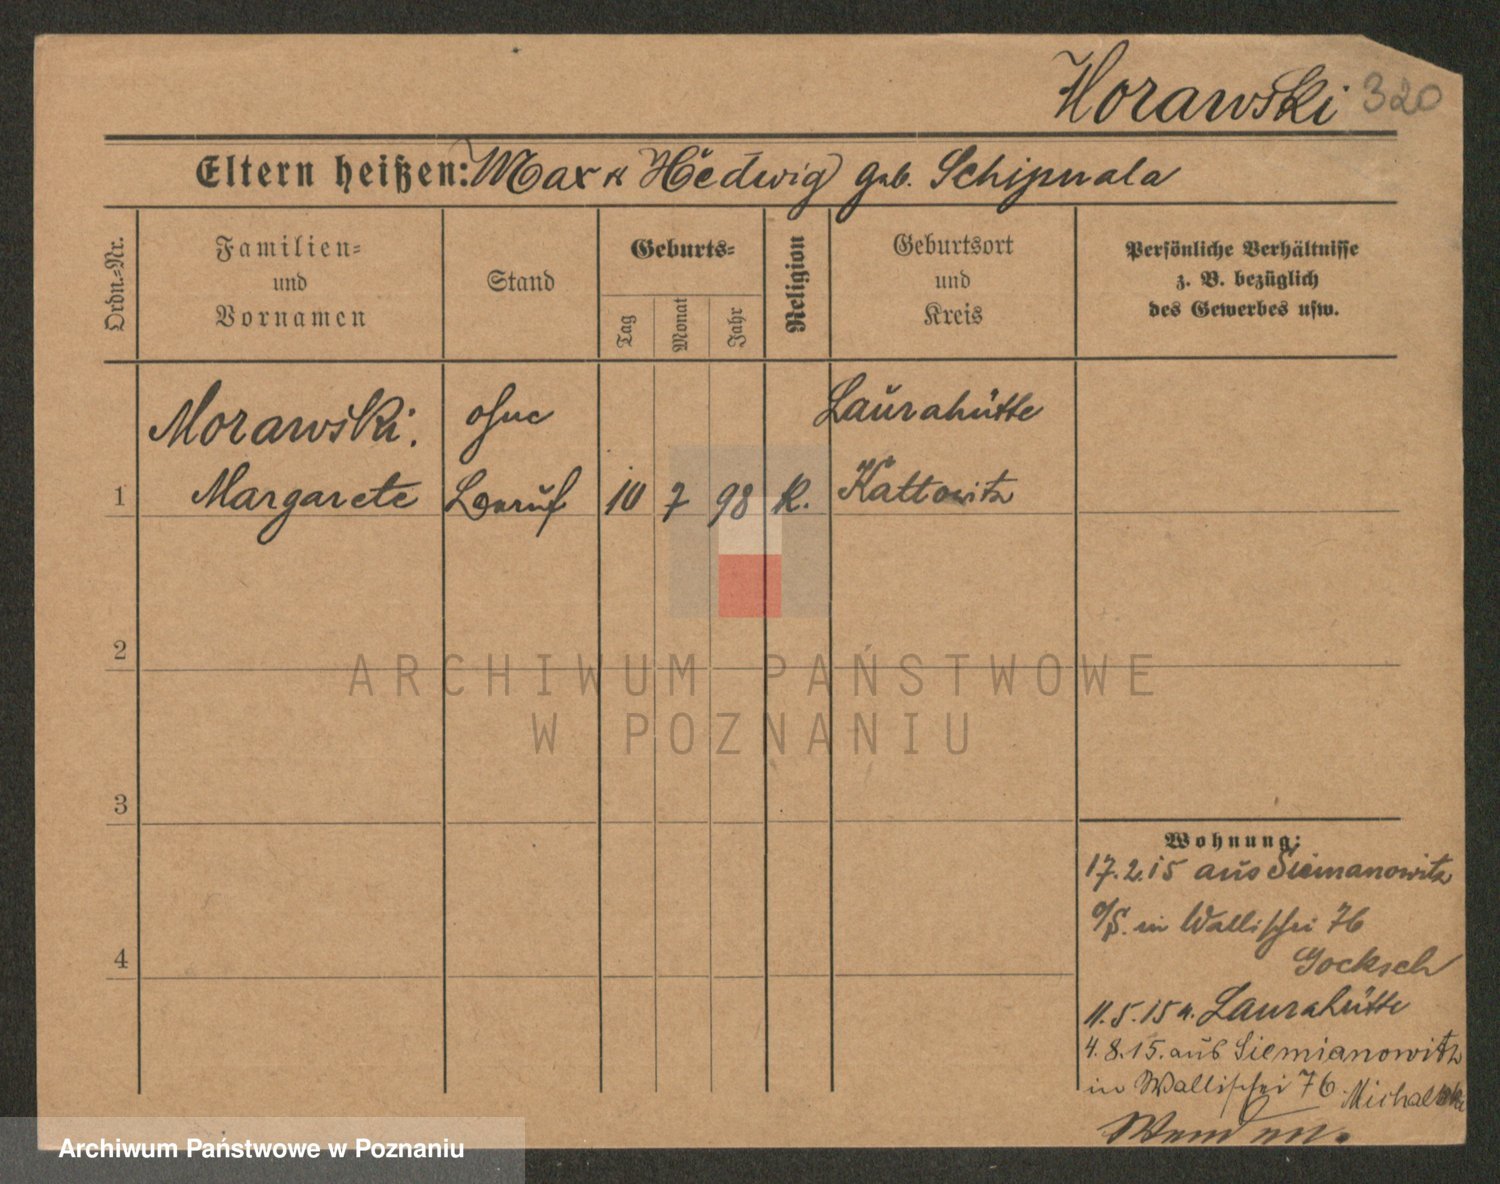 Morawski 320
Eltern heißen: Max u Hedwig geb. Schipnala
Ordn.=Nr.
Familien=
und
Vornamen
Stand
Geburts=
Tag
Monat
Jahr
Religion
Geburtsort
und
Kreis
Persönliche Verhältnisse
z. B. bezüglich
des Gewerbes usw.
Morawski. ohne Laurahütte
1 Margarete Beruf 10 7 98 K. Kattowitz
2
3
4
Wohnung:
17.2.15 aus Siemanowitz
O/S. in Wallischei 76
Gocksch
11.5.15 n. Laurahütte
4.8.15. aus Siemianowitz
in Wallischei 76 Michalski
Wenden.
ARCHIWUM PAŃSTWOWE
W POZNANIU
Archiwum Państwowe w Poznaniu